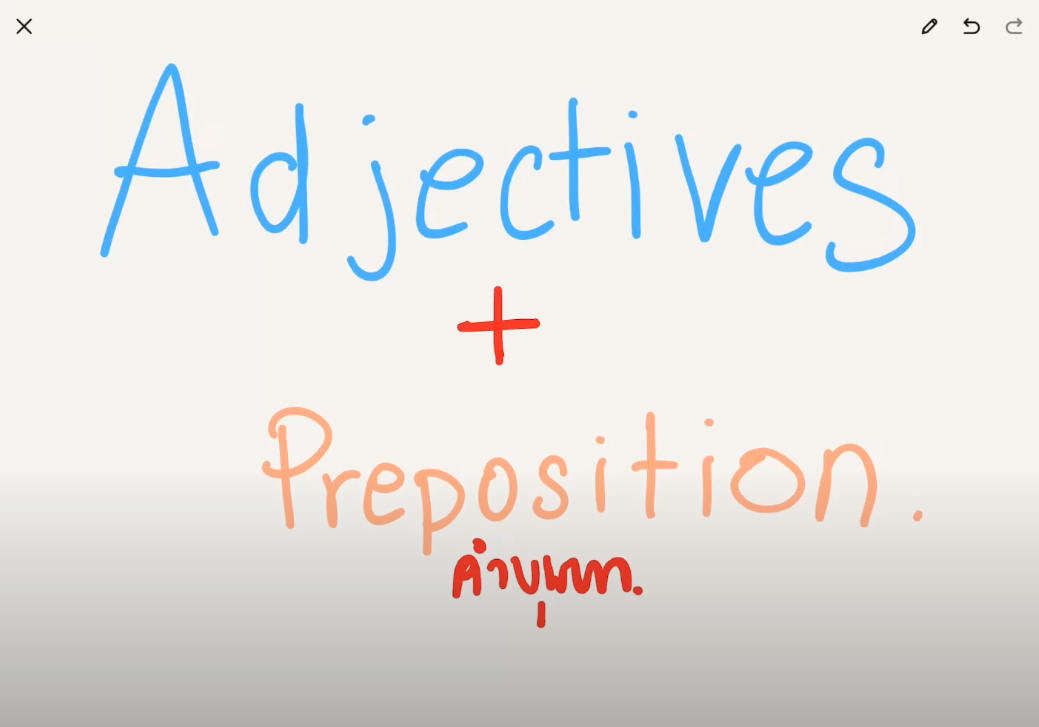 Adjectives
+
Preposition.
คำบุพบท.